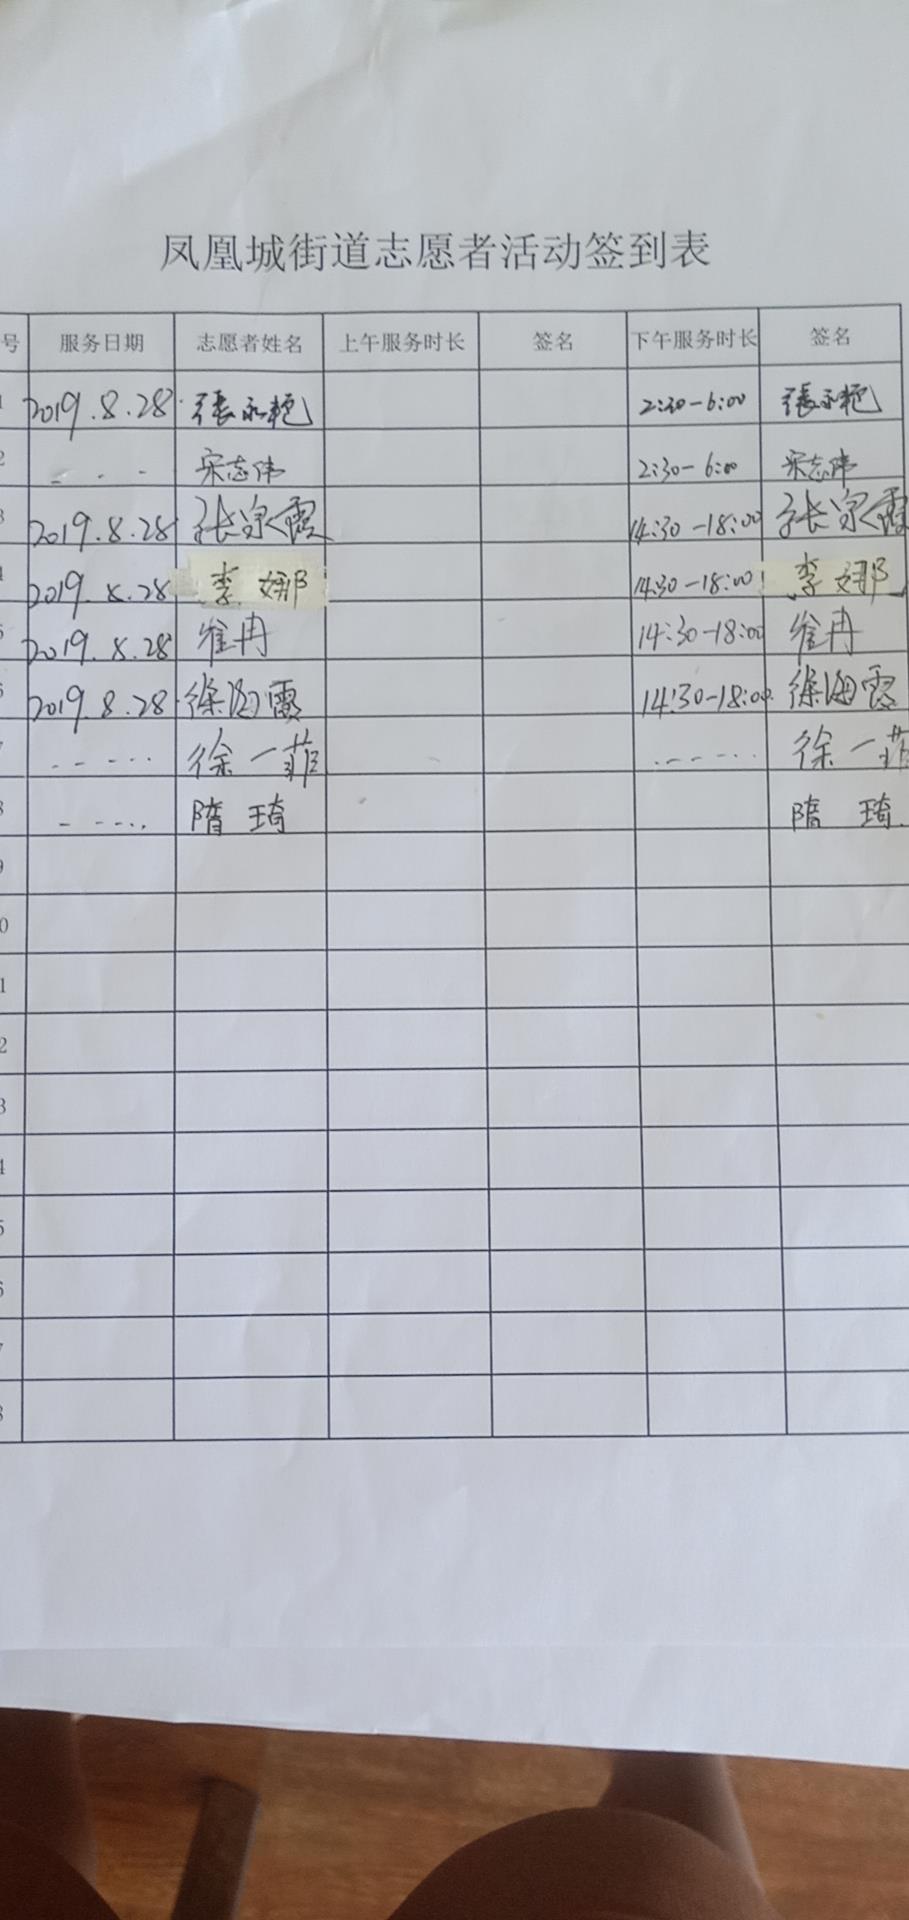 凤凰城街道志愿者活动签到表
号 服务日期 志愿者姓名 上午服务时长 签名 下午服务时长 签名
1 2019.8.28 張永艳 2:30-6:00 張永艳
2 宋志伟 2:30-6:00 宋志伟
3 2019.8.28 张泉霞 14:30-18:00 张泉霞
4 2019.8.28 李娜 14:30-18:00 李娜
5 2019.8.28 崔冉 14:30-18:00 崔冉
6 2019.8.28 徐海霞 14:30-18:00 徐海霞
7 ...... 徐一菲 ...... 徐一菲
8 ...... 隋琦 隋琦
9
0
1
2
3
4
5
6
7
8